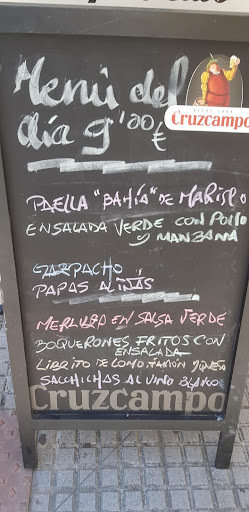 Menú del
día 9'00 €
Cruzcampo
PAELLA "BAHÍA" DE MARISCO
ENSALADA VERDE CON POLLO
y MANZANA
GAZPACHO
PAPAS ALIÑÁS
MERLUZA EN SALSA VERDE
BOQUERONES FRITOS CON
ENSALADA
LIBRITO DE LOMO JAMÓN y QUESO
SALCHICHAS AL VINO BLANCO
Cruzcampo